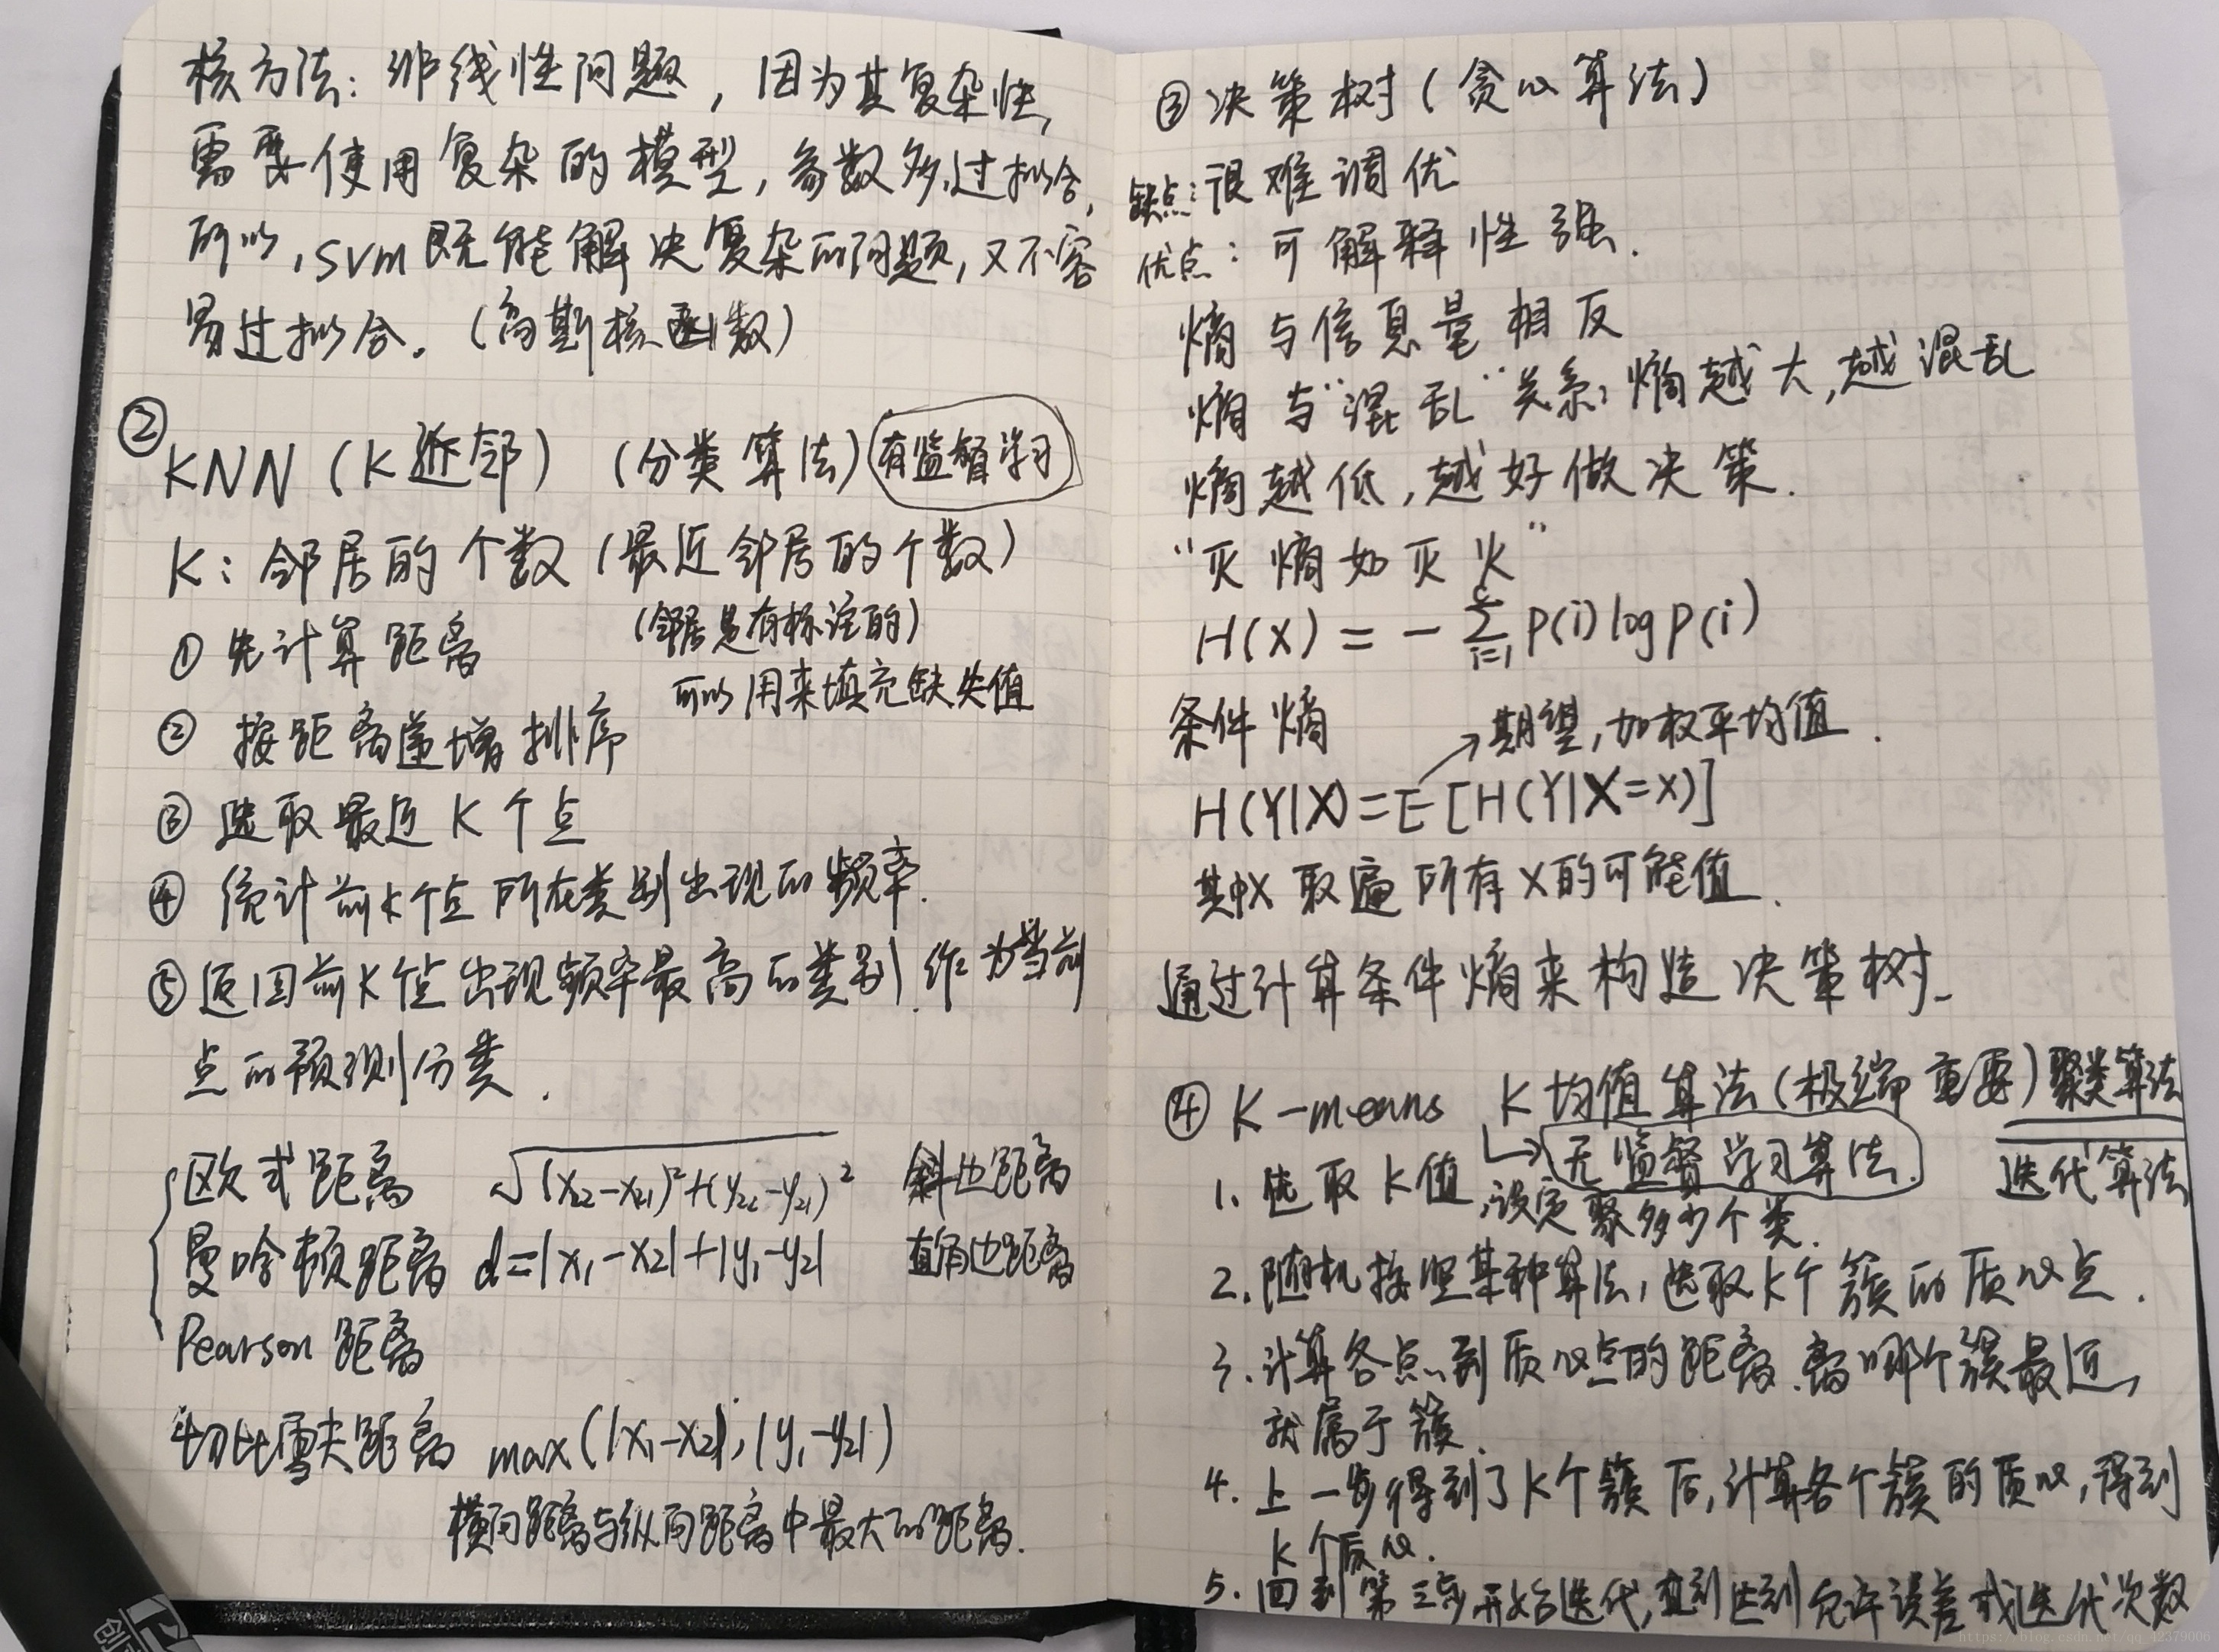 核方法：非线性问题，因为其复杂性，
需要使用复杂的模型，参数多，过拟合，
所以，svm既能解决复杂的问题，又不容
易过拟合。（高斯核函数）
②
KNN（K近邻）（分类算法）有监督学习
K：邻居的个数（最近邻居的个数）
（邻居是有标注的）
① 先计算距离
可以用来填充缺失值
② 按距离递增排序
③ 选取最近K个点
④ 统计前K个点所在类别出现的频率.
⑤ 返回前K个点出现频率最高的类别，作为当前
点的预测分类.
欧式距离 √(x22-x21)²+(y22-y21)² 斜边距离
曼哈顿距离 d=|x1-x2|+|y1-y2| 直角边距离
Pearson 距离
切比雪夫距离 max(|x1-x2|,|y1-y2|)
横向距离与纵向距离中最大的距离.
③ 决策树（贪心算法）
缺点：很难调优
优点：可解释性强.
熵与信息量相反
熵与"混乱"关系，熵越大，越混乱
熵越低，越好做决策.
"灭熵如灭火"
H(X) = - Σ i=1 P(i) log P(i)
条件熵 → 期望，加权平均值.
H(Y|X)=E[H(Y|X=x)]
其中x取遍所有X的可能值.
通过计算条件熵来构造决策树.
④ K-means K均值算法（极端重要）聚类算法
无监督学习算法. 迭代算法
1. 选取K值，设定聚多少个类.
2. 随机按照某种算法，选取K个簇的质心点.
3. 计算各点到质心点的距离，离哪个簇最近，
就属于簇.
4. 上一步得到了K个簇后，计算各个簇的质心，得到
K个质心.
5. 回到第三步开始迭代，直到达到允许误差或迭代次数
https://blog.csdn.net/qq_42379006